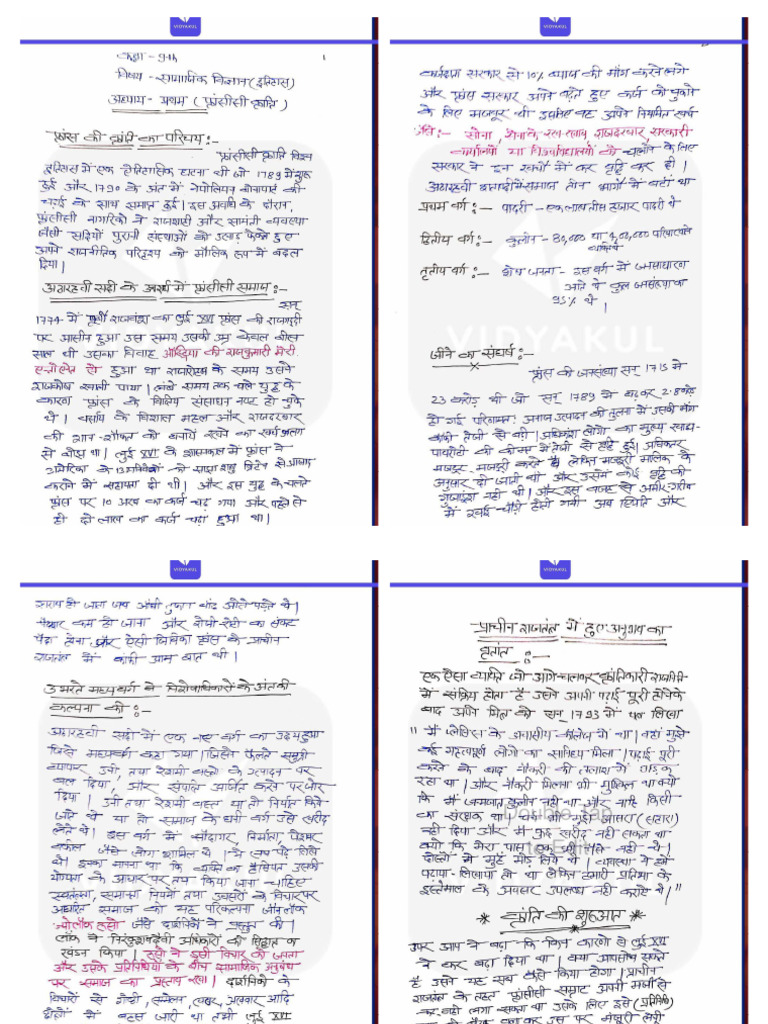 VIDYAKUL
कक्षा - 9th
1
विषय - सामाजिक विज्ञान (इतिहास)
अध्याय - प्रथम (फ्रांसीसी क्रांति)
फ्रांस की क्रांति का परिचय :-
फ्रांसीसी क्रांति विश्व
इतिहास में एक ऐतिहासिक घटना थी जो 1789 में शुरू
हुई और 1790 के अंत में नेपोलियन बोनापार्ट की
चढ़ाई के साथ समाप्त हुई। इस अवधि के दौरान,
फ्रांसीसी नागरिकों ने राजशाही और सामंती व्यवस्था
जैसी सदियों पुरानी संस्थाओं को उखाड़ फेंकते हुए
अपने राजनीतिक परिदृश्य को मौलिक रूप में बदल
दिया।
अठारहवीं सदी के में फ्रांसीसी समाज :-
सन्
1774 में राजवंश का लुई XVI फ्रांस की राजगद्दी
पर आसीन हुआ उस समय उसकी उम्र केवल बीस
साल थी उसका विवाह ऑस्ट्रिया की राजकुमारी मेरी
से हुआ था राज्यारोहण के समय उसने
राजकोष खाली पाया। लंबे समय तक चले युद्ध के
कारण फ्रांस के वित्तीय संसाधन नष्ट हो चुके
थे। वर्साय के विशाल महल और राजदरबार
की शान-शौकत को बनाये रखने का खर्च अलग
से बोझ था। लुई XVI के शासनकाल में फ्रांस ने
अमेरिका के 13 उपनिवेशों को साझा शत्रु ब्रिटेन से आजाद
कराने में सहायता दी थी। और इस युद्ध के चलते
फ्रांस पर 10 अरब का कर्ज चढ़ गया और पहले से
ही दो लाख का कर्ज चढ़ा हुआ था।
VIDYAKUL
कर्जदाता सरकार से 10% ब्याज की माँग करने लगे
और फ्रांस सरकार अपने बढ़ते हुए कर्ज को चुकाने
के लिए मजबूर थी इसलिए वह अपने नियमित खर्च
जैसे :- सेना, के रख-रखाव, राजदरबार, सरकारी
या विश्वविद्यालयों को चलाने के लिए
सरकार ने इन खर्चों में कर वृद्धि कर दी।
अठारहवीं शताब्दी में समाज तीन भागों में बंटा था
प्रथम वर्ग :- पादरी - एक लाख तीस हजार पादरी थे
द्वितीय वर्ग :- कुलीन - 80,000 या 4,00,000 परिवार वाले
तृतीय वर्ग :- शेष जनता - इस वर्ग में जनसाधारण
आते थे कुल जनसंख्या का
95% थे।
VIDYAKUL
जीने का संघर्ष :-
फ्रांस की जनसंख्या सन् 1715 में
23 करोड़ थी जो सन् 1789 में बढ़कर 2.8 करोड़
हो गई परिणामतः अनाज उत्पादन की तुलना में उसकी माँग
काफी तेजी से बढ़ी। अधिकांश लोगों का मुख्य खाद्य-
पावरोटी की कीमत में तेजी से वृद्धि हुई। अधिकतर
मजदूर मजदूरी करते थे लेकिन मजदूरी मालिक के
अनुसार दी जाती थी और उसमें कोई वृद्धि की
गुंजाइश नहीं थी। और इस वजह से अमीर-गरीब
में खाई चौड़ी होती गयी अब स्थिति और
VIDYAKUL
खराब हो जाती जब आँधी तूफान बाढ़ ओले पड़ते थे।
कम हो जाना और रोजी-रोटी का संकट
पैदा होना और ऐसी जीविका फ्रांस के प्राचीन
राजतंत्र में काफी आम बात थी।
उभरते मध्यवर्ग ने विशेषाधिकारों के अंत की
कल्पना की :-
अठारहवीं सदी में एक नए वर्ग का उदय हुआ
जिसे मध्यवर्ग कहा गया। जिसने फैलते समुद्री
व्यापार, ऊनी तथा रेशमी वस्त्रों के उत्पादन पर
बल दिया, और संपत्ति अर्जित करने पर जोर
दिया। ऊनी तथा रेशमी वस्त्र या तो निर्यात किये
जाते थे या तो समाज के धनी वर्ग उसे खरीद
लेते थे। इस वर्ग में सौदागर, निर्माता, पेशेवर
वकील जैसे लोग शामिल थे। ये सब पढ़े लिखे
थे। इनका मानना था कि व्यक्ति की हैसियत उसकी
योग्यता के आधार पर तय किया जाना चाहिए
स्वतंत्रता, समानता नियमों तथा अवसरों के विचार पर
आधारित समाज की यह परिकल्पना जॉन लॉक
ज्याँ जाक रूसो जैसे दार्शनिकों ने प्रस्तुत की।
लॉक ने निरंकुश दैवी अधिकारों के सिद्धांत का
खंडन किया। रूसो ने इसी विचार को आगे
और उसके प्रतिनिधियों के बीच सामाजिक अनुबंध
पर समाज का प्रस्ताव रखा। दार्शनिकों के
विचारों से गोष्ठी, सम्मेलन, अखबार आदि
VIDYAKUL
प्राचीन राजतंत्र में हुए अनुभव का
वृतांत :-
एक ऐसा व्यक्ति जो आगे चलकर क्रांतिकारी राजनीति
में सक्रिय होता है उसने अपनी पढ़ाई पूरी होने के
बाद अपने मित्र को सन् 1793 में पत्र लिखा
" मैं प्लेसिस के आवासीय कॉलेज में था। वहां मुझे
कई महत्वपूर्ण लोगों का सान्निध्य मिला। पढ़ाई पूरी
करने के बाद नौकरी की तलाश में
रहा था। और नौकरी मिलना भी मुश्किल था क्यों
कि मैं जन्मजात कुलीन नहीं था और नाही किसी
का संरक्षण था। धन भी मुझे आसरा (सहारा)
नहीं दिया और मैं कुछ खरीद नहीं सकता था
क्यों कि मेरे पास एक भी पैसे नहीं थे।
दोस्तों ने मुंह मोड़ लिये थे। व्यवस्था ने हमें
पढ़ाया-लिखाया तो था लेकिन हमारी प्रतिभा के
इस्तेमाल के अवसर उपलब्ध नहीं कराये थे। "
Double tap
to Edit
* क्रांति की शुरुआत *
ऊपर आप ने पढ़ा कि किन कारणों से लुई XVI
ने कर बढ़ा दिया था। क्या आप सोच सकते
हैं उसने यह सब कैसे किया होगा। प्राचीन
राजतंत्र के तहत फ्रांसीसी सम्राट अपनी मर्जी से
कर नहीं लगा सकता था उसके लिए इसे (प्रतिनिधि)